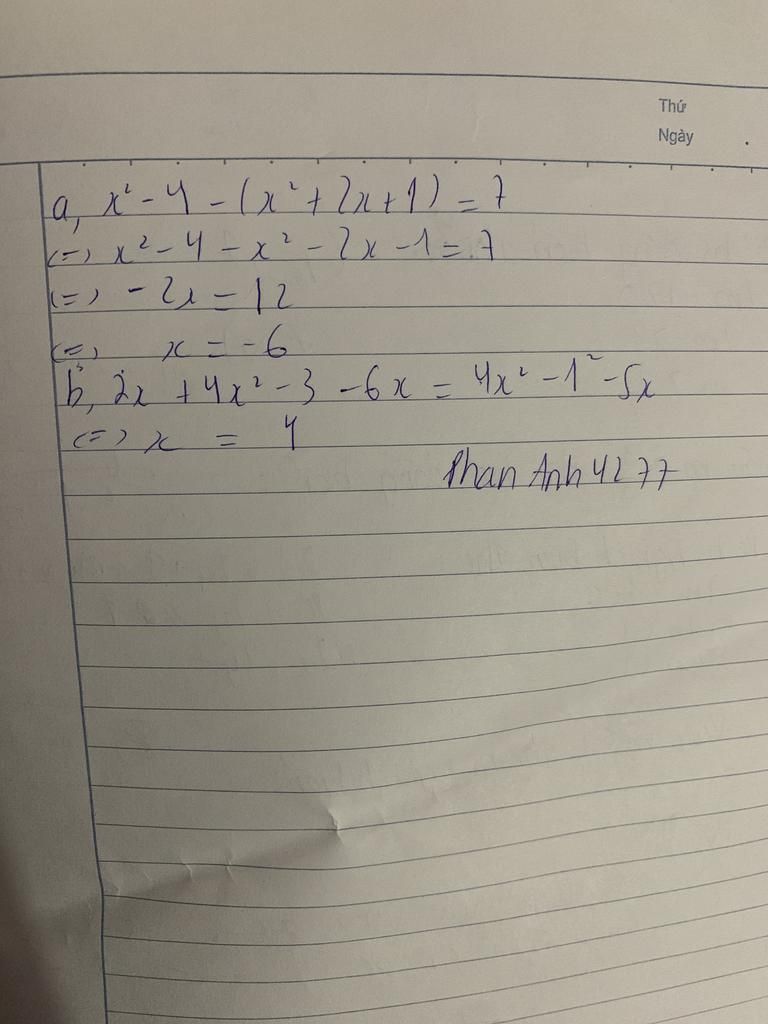 Thứ
Ngày
a, x² - 4 - (x² + 2x + 1) = 7
(=) x² - 4 - x² - 2x - 1 = 7
(=) - 2x = 12
(=) x = -6
b, 2x + 4x² - 3 - 6x = 4x² - 1² - 5x
(=) x = 4
Phan Anh 4277